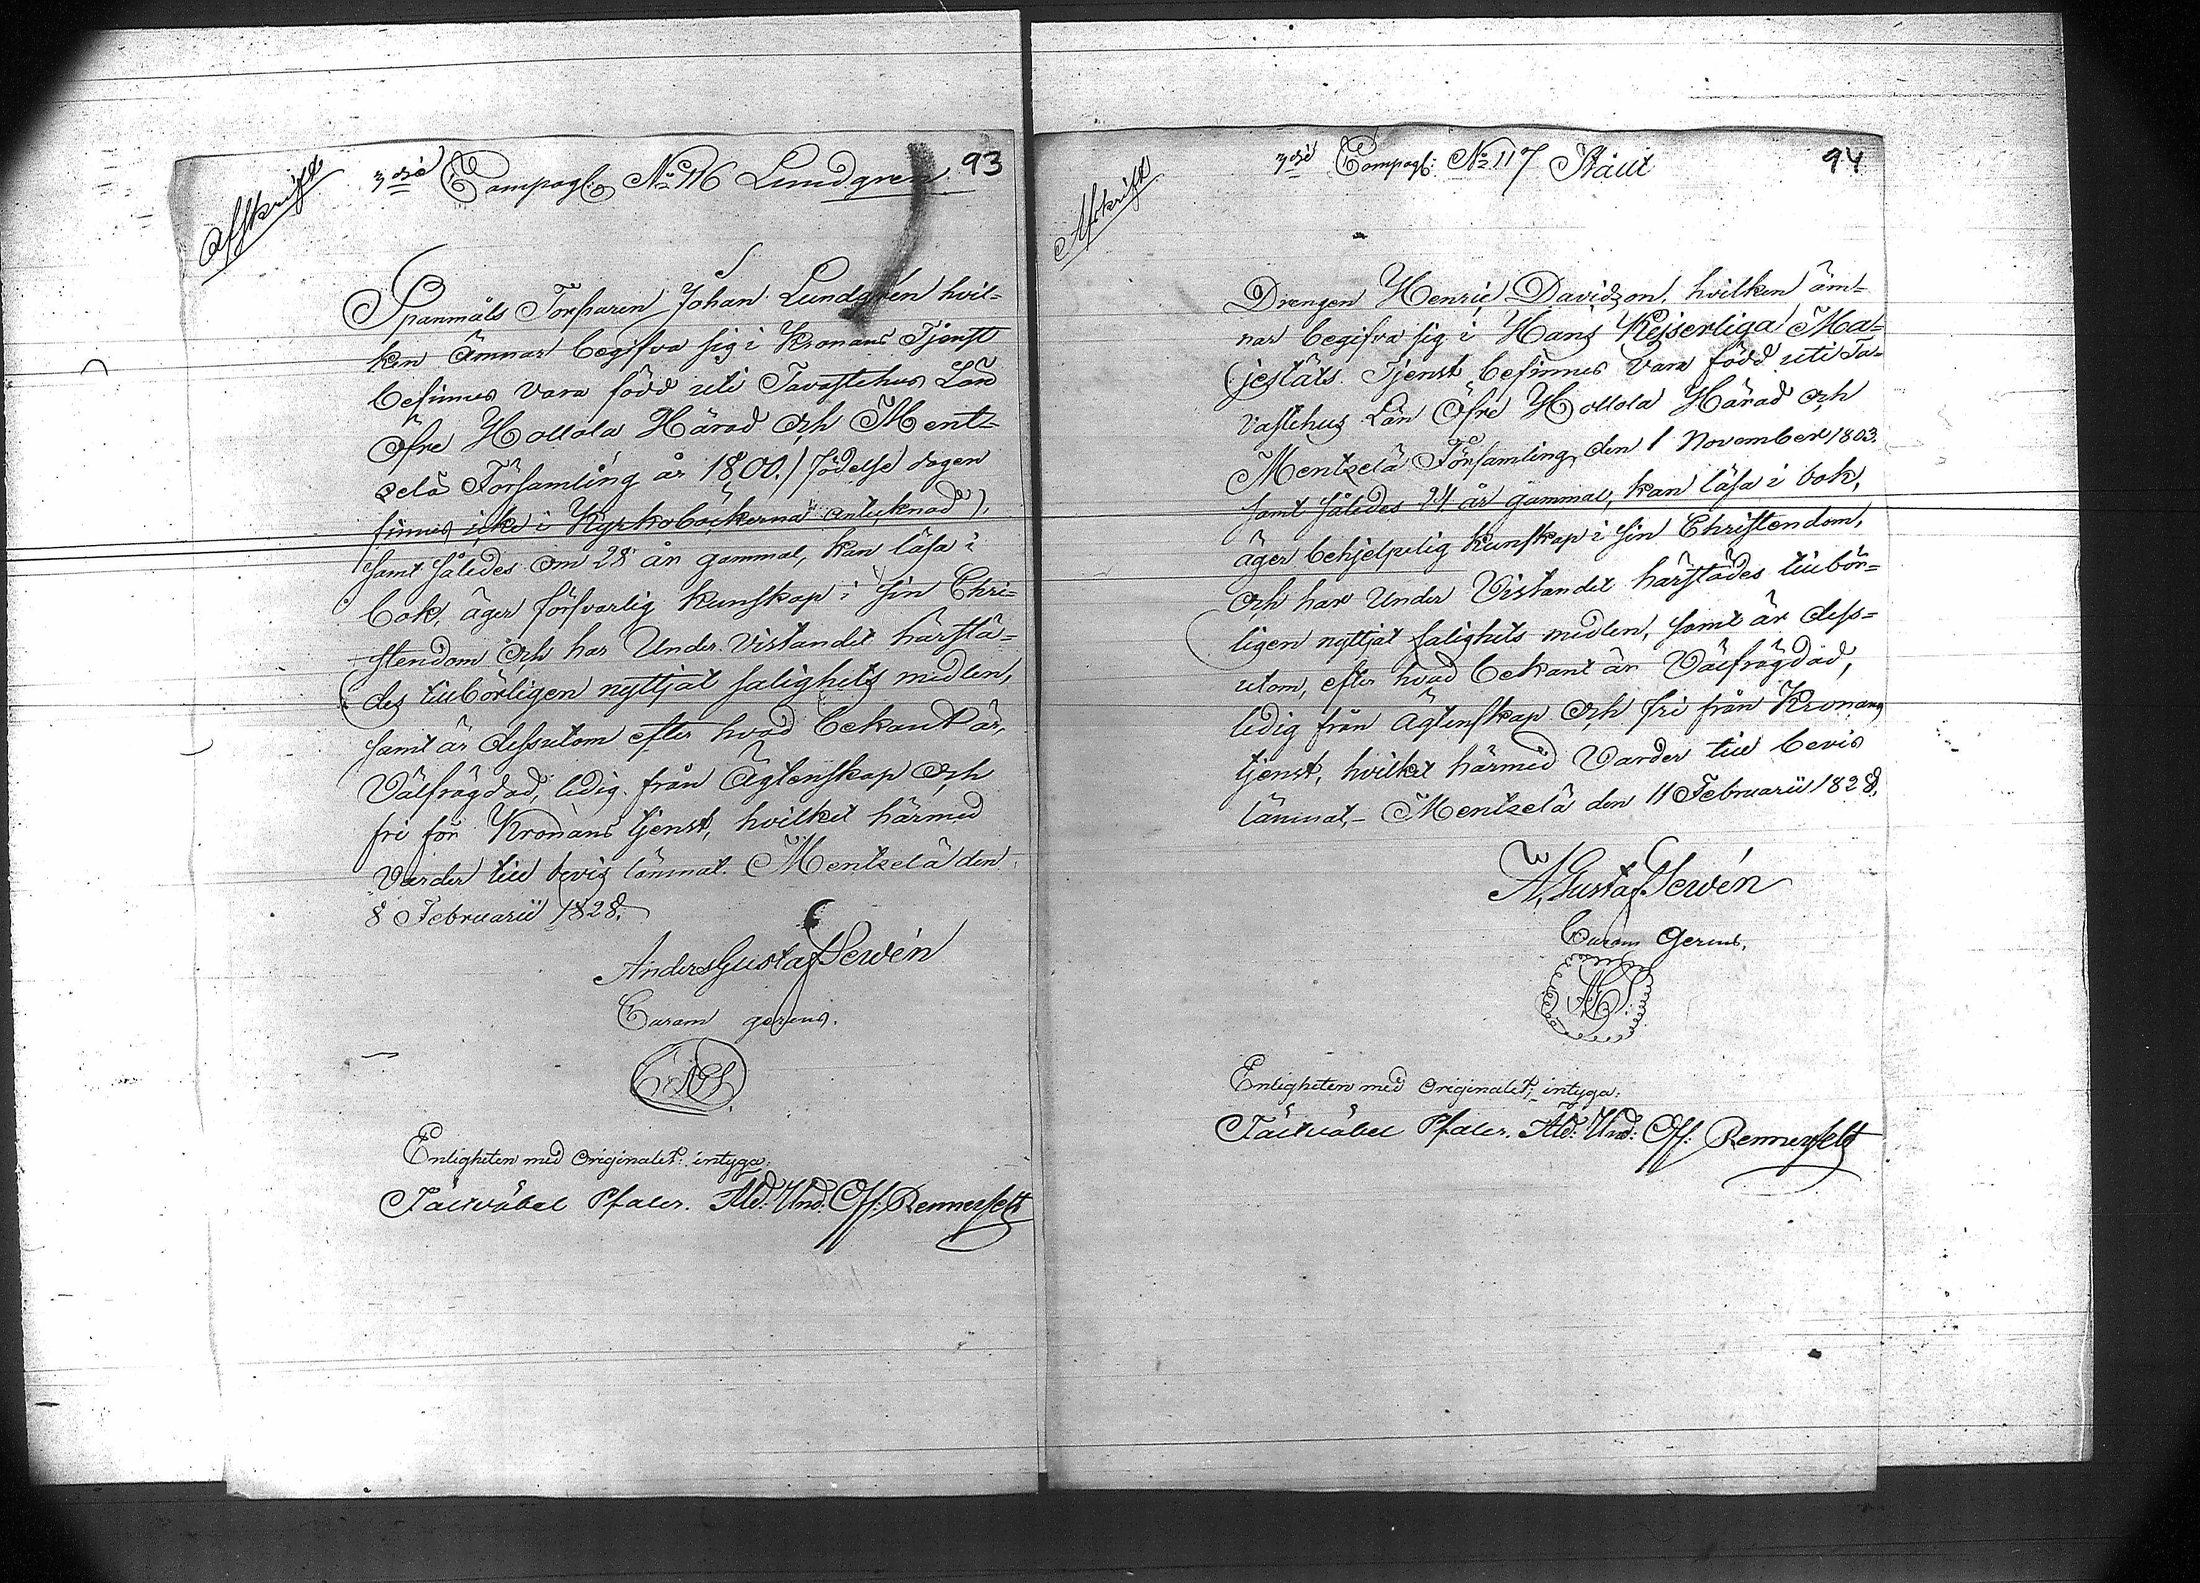 Afskrift
3dje Compagl: No 116 Lundgren 93
Spanmåls Torparen Johan Lundgren hvil-
ken Ämnar begifva sig i Kronans Tjenst
befinnes vara född uti Tavastehus Län
Öfre Hollola Härad och Ment-
zelä Församling år 1800. /födelse dagen
finnes icke i Kyrkoböckerna antecknad/.
samt således om 28 år gammal, kan läsa i
bok, äger försvarlig kunskap i sin Chri-
stendom och har Under Vistandet härstä-
des tillbörligen nyttjat salighets medlen,
samt är dessutom efter hvad bekant är,
Välfrägdad, ledig från Ägtenskap och
fri för Kronans tjenst, hvilket härmed
Varder till bevis lämnat. Mentzelä den
8 Februarii 1828.
Anders Gustaf Serwén
Curam gerens.
AGS
Enligheten med Originalet: intyga:
Fältväbel Pfaler. Äld: Und: Off: Rennerfelt
Afskrift
3dje Compagl: No 117 94
Drengen Henric Davidson, hvilken äm-
nar begifva sig i Hans Kejserliga Ma-
jestäts Tjenst befinnes vara född uti Ta-
vastehus Län Öfre Hollola Härad och
Mentzelä Församling den 1 November 1803.
samt således 24 år gammal, kan läsa i bok,
äger behjelpelig kunskap i sin Christendom,
och har Under Vistandet härstädes tillbör-
ligen nyttjat salighets medlen, samt är dess-
utom, efter hvad bekant är Välfrägdad,
ledig från Ägtenskap och fri från Kronans
tjenst, hvilket härmed Varder till bevis
lämnat,- Mentzelä den 11 Februarii 1828.
A. Gustaf Serwén
Curam Gerens.
AGS.
Enligheten med Originalet; intyga:
Fältväbel Pfaler. Äld: Und: Off: Rennerfelt